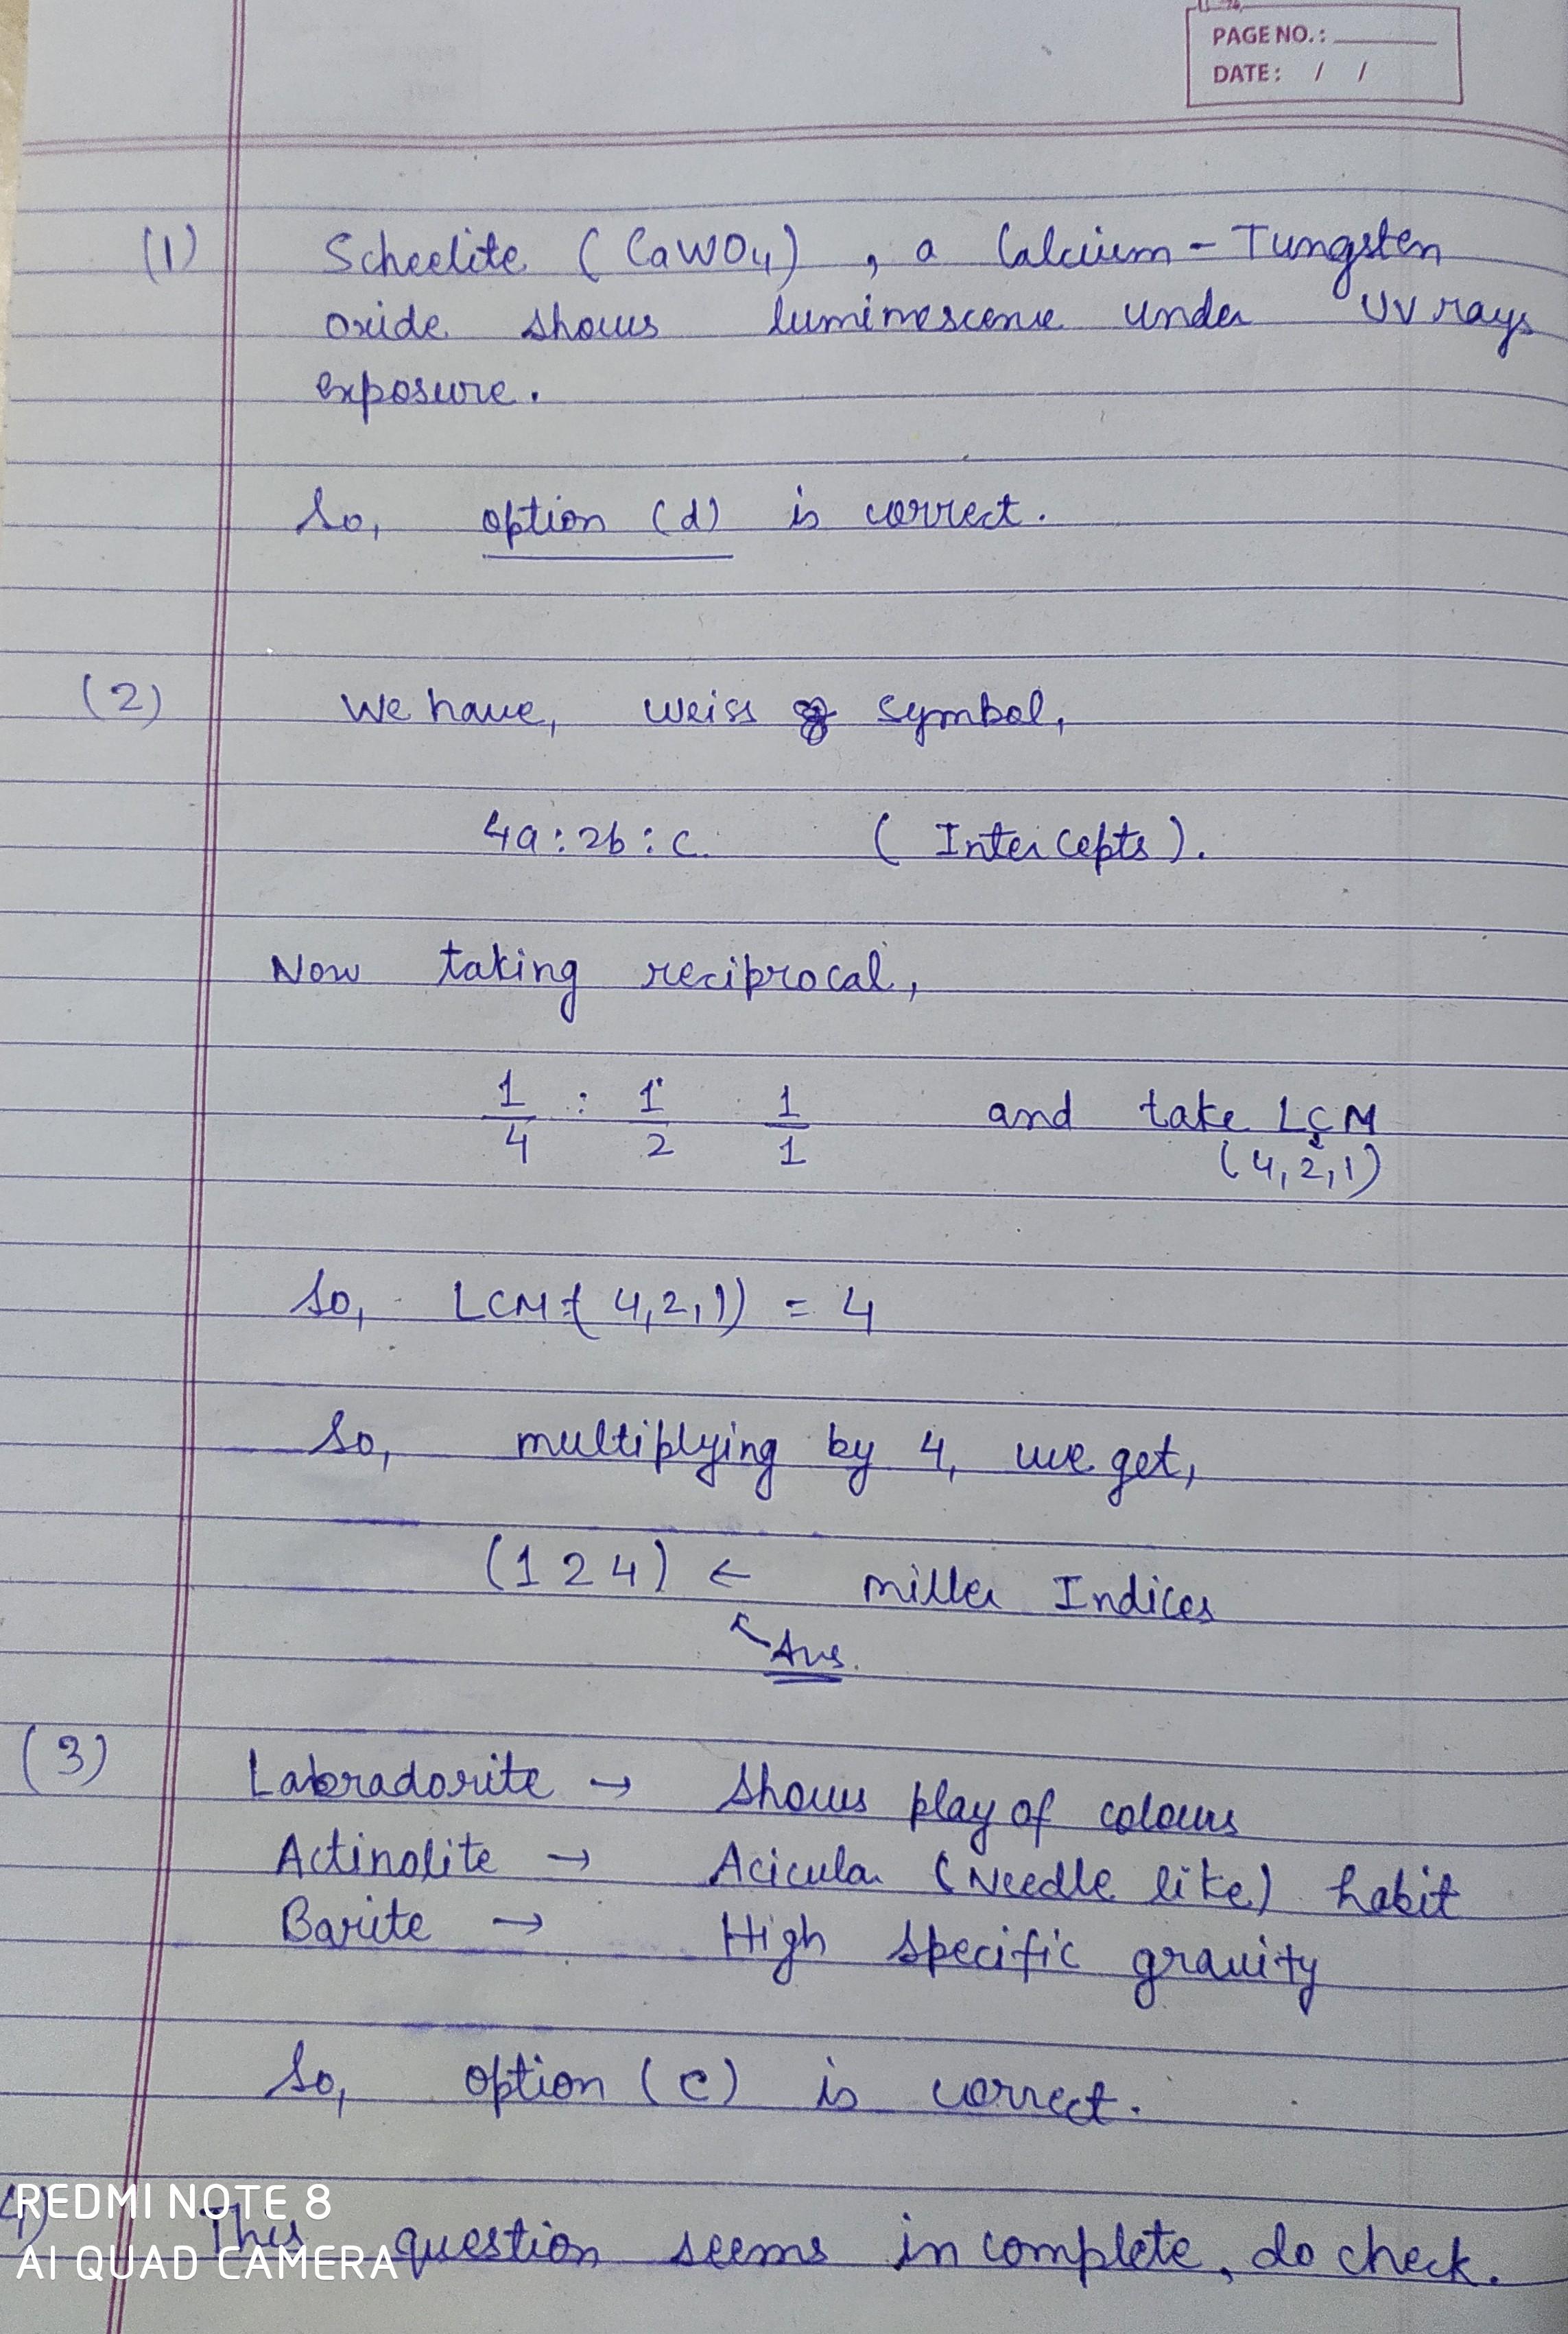 PAGE NO.:
DATE: / /
(1) Scheelite (CaWO4), a Calcium-Tungsten
oxide shows luminescence under UV rays
exposure.
So, option (d) is correct.
(2) We have, weiss symbol,
4a:2b:c (Intercepts).
Now taking reciprocal,
1/4 : 1/2 1/1 and take LCM
(4,2,1)
So, LCM (4,2,1) = 4
So, multiplying by 4, we get,
(1 2 4) ← miller Indices
Ans.
(3) Labradorite → shows play of colours
Actinolite → Acicular (Needle like) habit
Barite → High specific gravity
So, option (c) is correct.
4) This question seems incomplete, do check.
REDMI NOTE 8
AI QUAD CAMERA